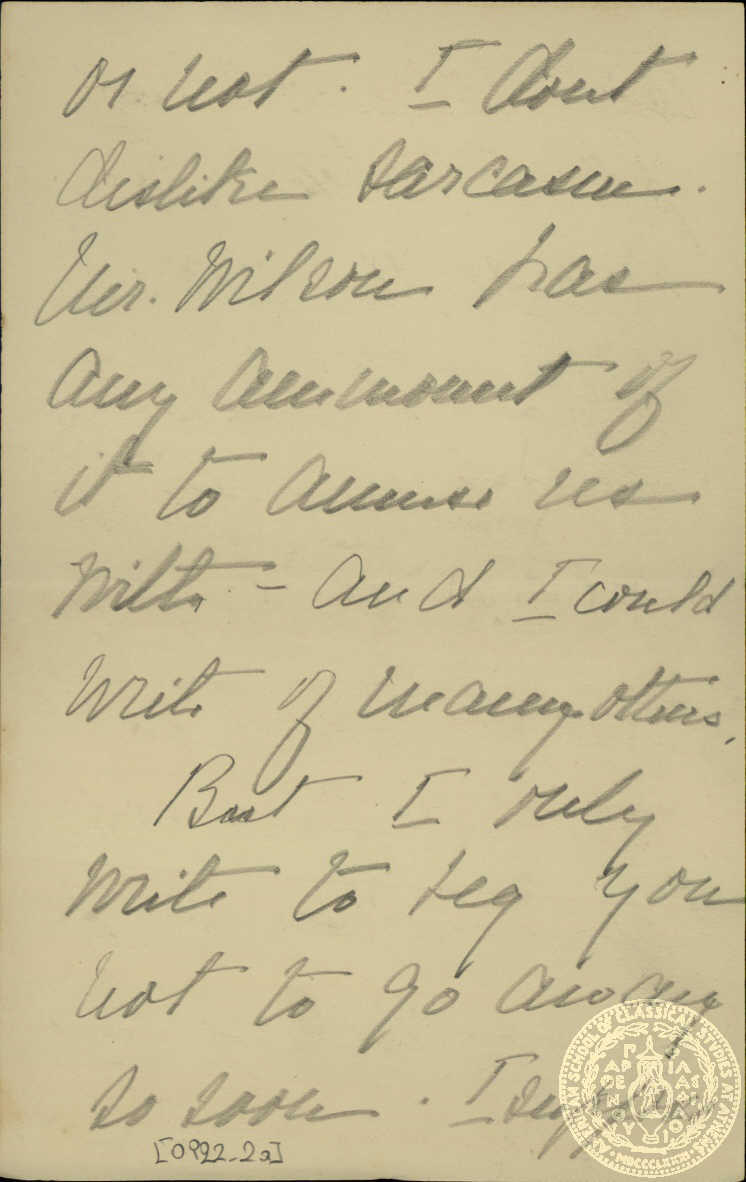 or not. I dont
dislike sarcasm.
Mr. Wilson has
any ammount of
it to amuse us
with - And I could
write of many others,
But I only
write to beg you
not to go away
so soon. I suppose
[0922-2a]
AMERICAN SCHOOL OF CLASSICAL STUDIES AT ATHENS
ΠΑΡΘΕΝΟΥ ΦΙΑΣ
MDCCCLXXXI